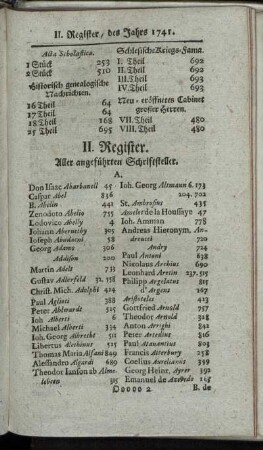 II. Register, des Jahrs 1741.
Acta Scholastica.
1 Stück 253
2 Stück 510
Historisch genealogische
Nachrichten.
16 Theil 64
17 Theil 64
18 Theil 168
25 Theil 695
Schlesische Kriegs-Fama.
I. Theil 692
II. Theil 692
III. Theil 693
IV. Theil 693
Neu-eröffnetes Cabinet
großer Herren.
VII. Theil 480
VIII. Theil 480
II. Register.
Aller angeführten Schriftsteller.
A.
Don Isaac Abarbaneli 45
Caspar Abel 836
II. Abelin 441
Zenodoto Abelio 735
Lodovico Abelly 77
Johann Abermethy 305
Joseph Abudacni 58
Georg Adams 306
Addison 200
Martin Adelt 731
Gustav Adlerfeld 32. 158
Christ. Mich. Adelphi 424
Paul Aglioti 388
Peter Ahlwardt 515
Joh Alberti 6
Michael Alberti 334
Joh. Georg Albrecht 511
Libertus Alethinus 507
Thomas Maria Alfani 849
Alessandro Algardi 689
Theodor Janson ab Alme-
loveen 315
Joh. Georg Altmann 6. 173
204. 702
St. Ambrosius 435
Amelot de la Houssaye 47
Joh. Amman 778
Andreas Hieronym. An-
dreucci 720
Andry 724
P. Antoni 188
Nicolaus Archius 690
Leonhard Aretin 237. 515
Philipp Argelatus 815
d'Argens 167
Aristoteles 423
Gottfried Arnold 757
Theodor Arnold 328
Anton Arrighi 842
Peter Artedius 860
Paul Atavantius 803
Francis Atterbury 258
Coelius Aurelianus 315
Georg Heinr. Ayrer 302
Emanuel de Azevedo 215
Ooooo 2
B. de